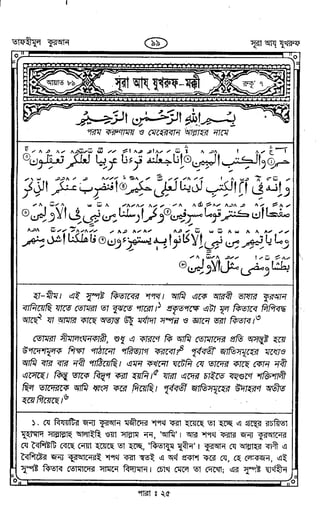 তাফহীমুল কুরআন ৯৯ সূরা আয্ যুখরুফ
আয়াত ৮৯ সূরা আয্ যুখরুফ-মক্কী রুকূ' ৭
بسم الله الرحمن الرحيم
পরম করুণাময় ও মেহেরবান আল্লাহর নামে
حم ۝ والكتب المبين ۝ إنا جعلنه قرءنا عربيا لعلكم تعقلون ۝
وإنه في أم الكتب لدينا لعلي حكيم ۝ أفنضرب عنكم الذكر
صفحا أن كنتم قوما مسرفين ۝ وكم أرسلنا من نبي في الأولين ۝
وما يأتيهم من نبي إلا كانوا به يستهزءون ۝ فأهلكنا أشد منهم
بطشا ومضى مثل الأولين ۝
হা-মীম। এই সুস্পষ্ট কিতাবের শপথ। আমি একে আরবী ভাষার কুরআন
বানিয়েছি যাতে তোমরা তা বুঝতে পারো।১ প্রকৃতপক্ষে এটা মূল কিতাবে লিপিবদ্ধ
আছে২ যা আমার কাছে অত্যন্ত উঁচু মর্যাদা সম্পন্ন ও জ্ঞানে ভরা কিতাব।৩
তোমরা সীমালংঘনকারী, শুধু এ কারণে কি আমি তোমাদের প্রতি অসন্তুষ্ট হয়ে
উপদেশমূলক শিক্ষা পাঠানো পরিত্যাগ করবো?৪ পূর্ববর্তী জাতিসমূহের মধ্যেও
আমি বার বার নবী পাঠিয়েছি। এমন কখনো ঘটেনি যে তাদের কাছে কোন নবী
এসেছে। কিন্তু তাকে বিদ্রূপ করা হয়নি।৫ যারা এদের চাইতে বহুগুণে শক্তিশালী
ছিল তাদেরকে আমি ধ্বংস করে দিয়েছি। পূর্ববর্তী জাতিসমূহের উদাহরণ অতীত
হয়ে গিয়েছে।৬
১. যে বিষয়টির জন্য কুরআন মজীদের শপথ করা হয়েছে তা হচ্ছে এ গ্রন্থের রচয়িতা
মুহাম্মাদ সাল্লাল্লাহু আলাইহি ওয়া সাল্লাম নন, 'আমি'। আর শপথ করার জন্য কুরআনের
যে বৈশিষ্টটি বেছে নেয়া হয়েছে তা হচ্ছে, 'কিতাবুম মুবীন'। কুরআন যে আল্লাহর বাণী এ
বৈশিষ্টের জন্য কুরআনেরই শপথ করা স্বতই এ অর্থ প্রকাশ করে যে, হে লোকজন, এই
সুস্পষ্ট কিতাব তোমাদের সামনে বিদ্যমান। চোখ মেলে তা দেখো; এর সুস্পষ্ট দ্ব্যর্থহীন
পারা : ২৫